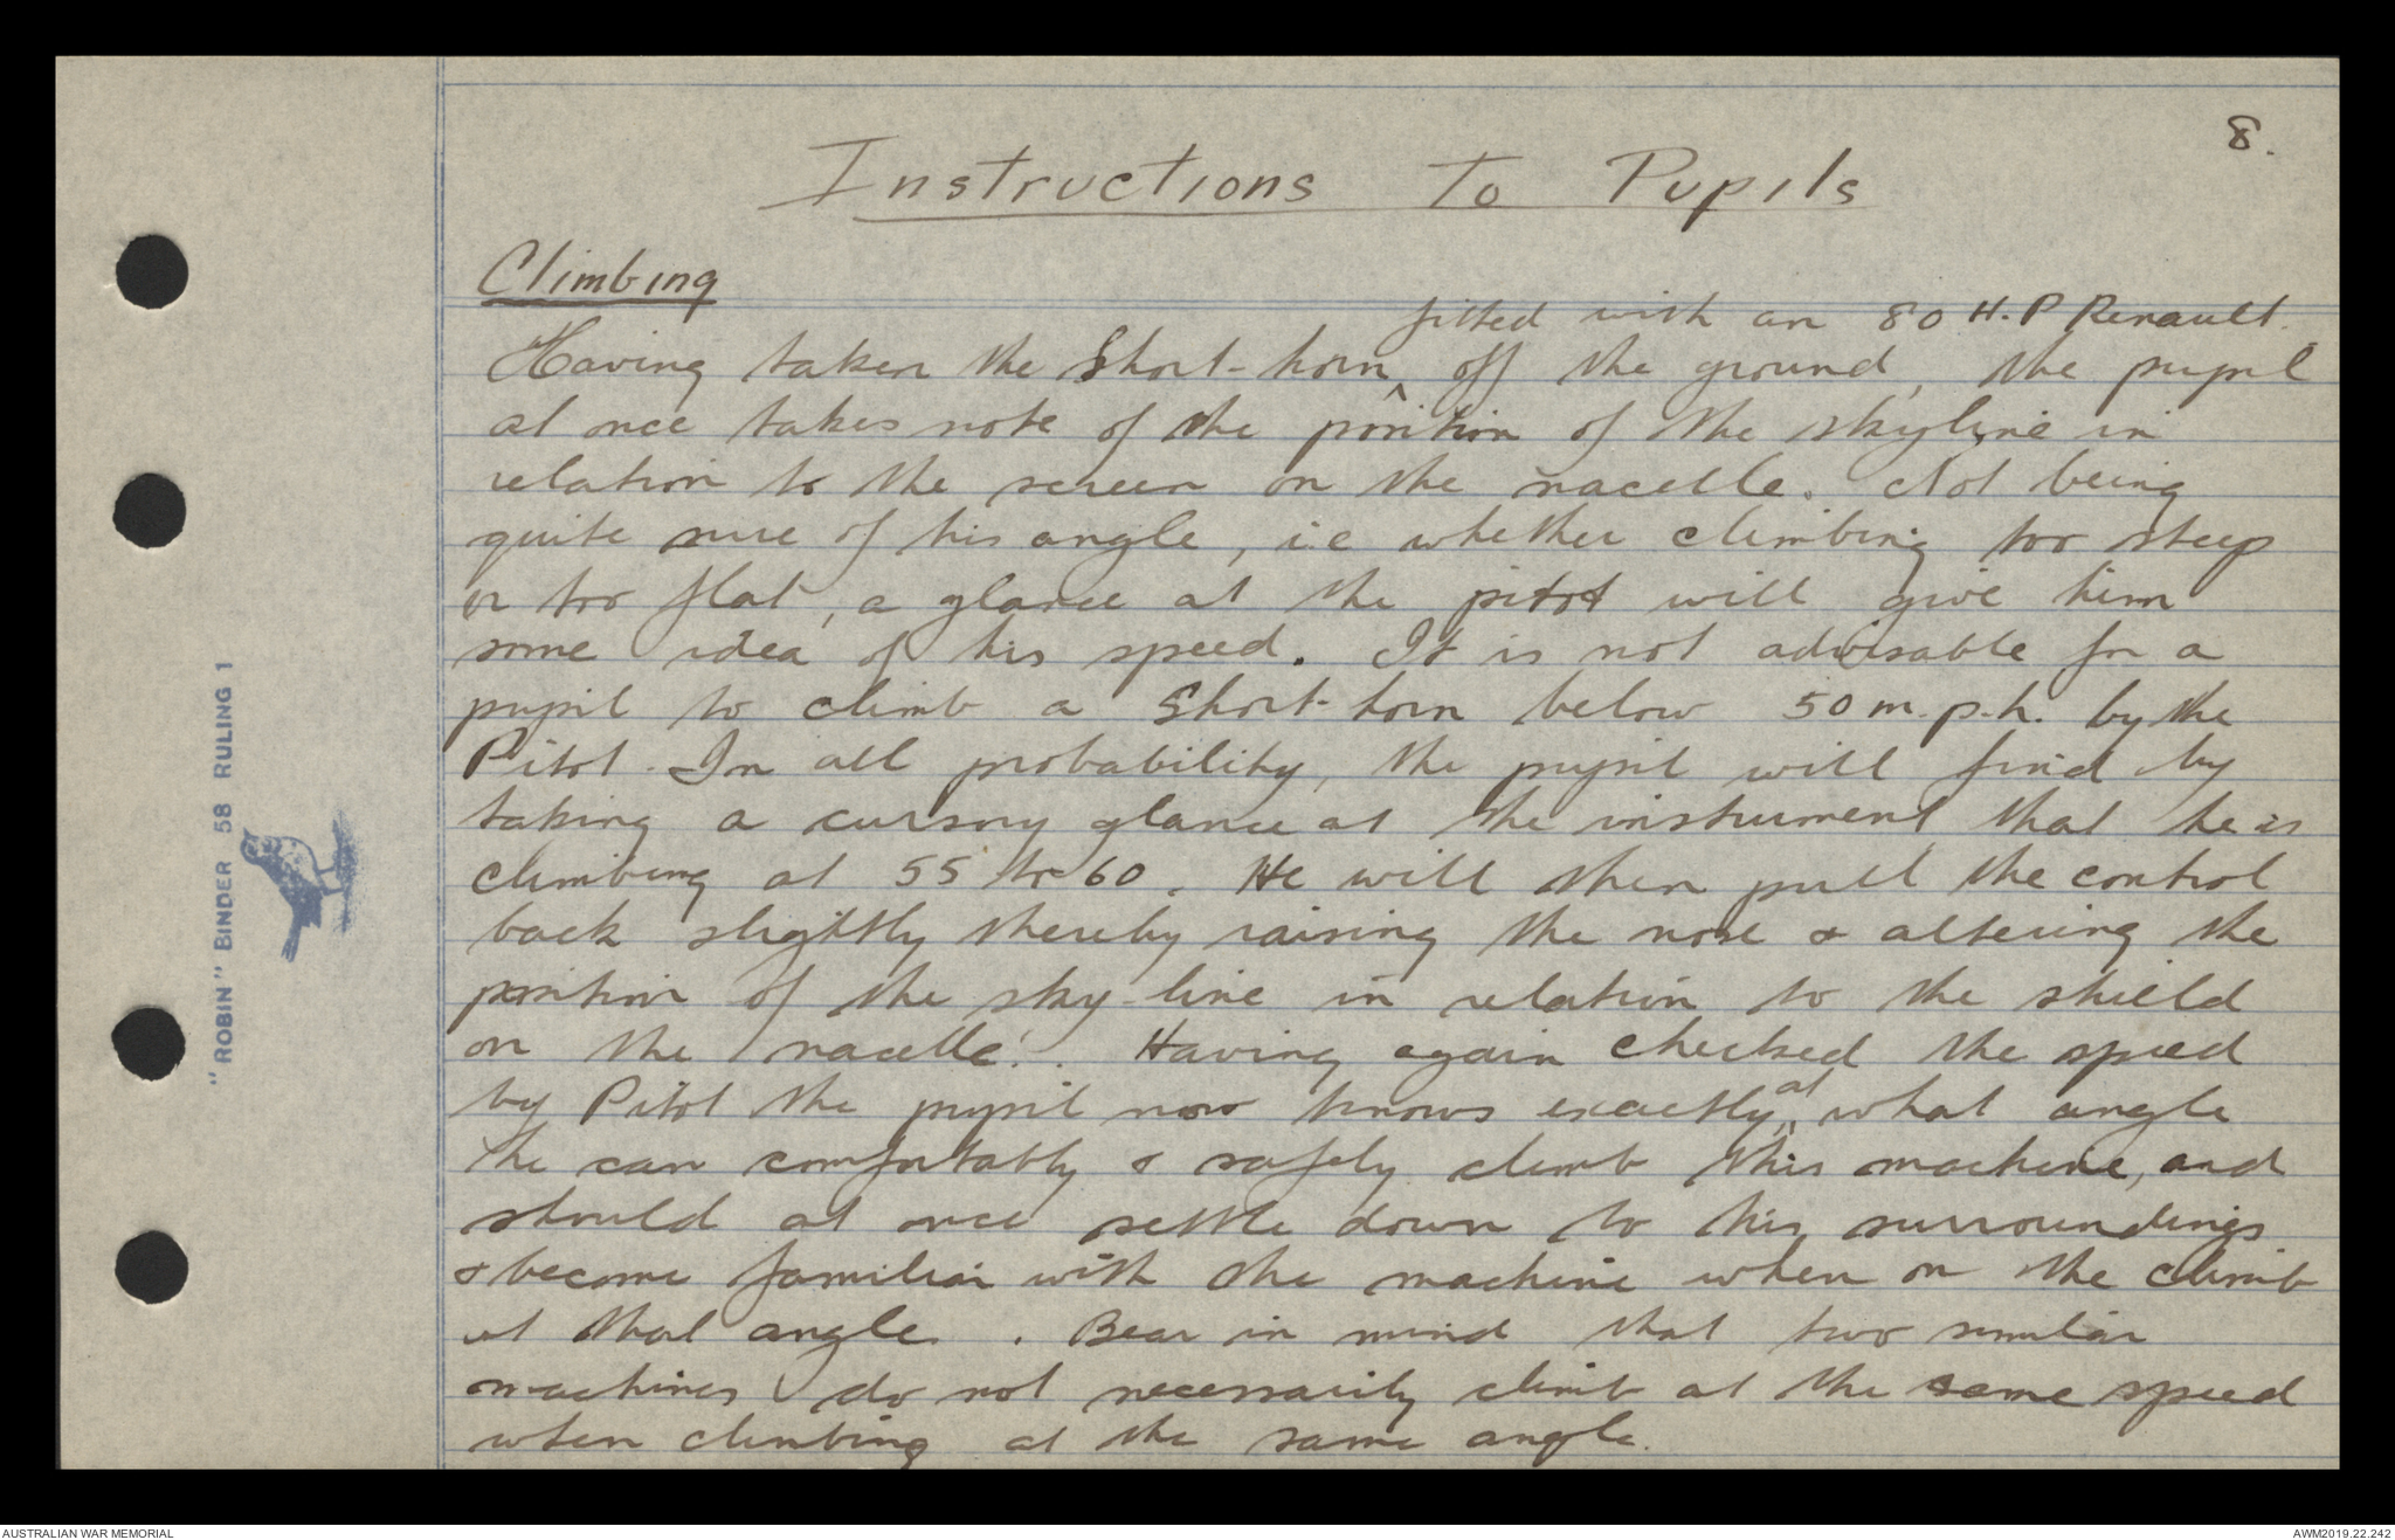 8.
Instructions To Pupils
Climbing
fitted with an 80 H.P Renault.
Having taken the Short-horn ^ off the ground, the pupil
at once takes note of the position of the skyline in
relation to the screen on the nacelle. Not being
quite sure of his angle, i.e whether climbing too steep
or too flat, a glance at the pitot will give him
some idea of his speed. It is not advisable for a
pupil to climb a Short-horn below 50 m.p.h. by the
Pitot. In all probability, the pupil will find by
taking a cursory glance at the instrument that he is
climbing at 55 to 60. He will then pull the control
back slightly thereby raising the nose & altering the
position of the sky-line in relation to the shield
on the nacelle. Having again checked the speed
by Pitot the pupil now knows exactly at what angle
he can comfortably & safely climb this machine, and
should at once settle down to his surroundings
& become familiar with the machine when on the climb
at that angle. Bear in mind that two similar
machines do not necessarily climb at the same speed
when climbing at the same angle.
"ROBIN" BINDER 58 RULING 1
AUSTRALIAN WAR MEMORIAL
AWM2019.22.242